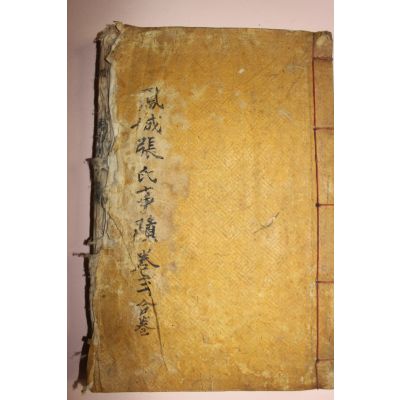 鳳城張氏事蹟 卷之二 合卷